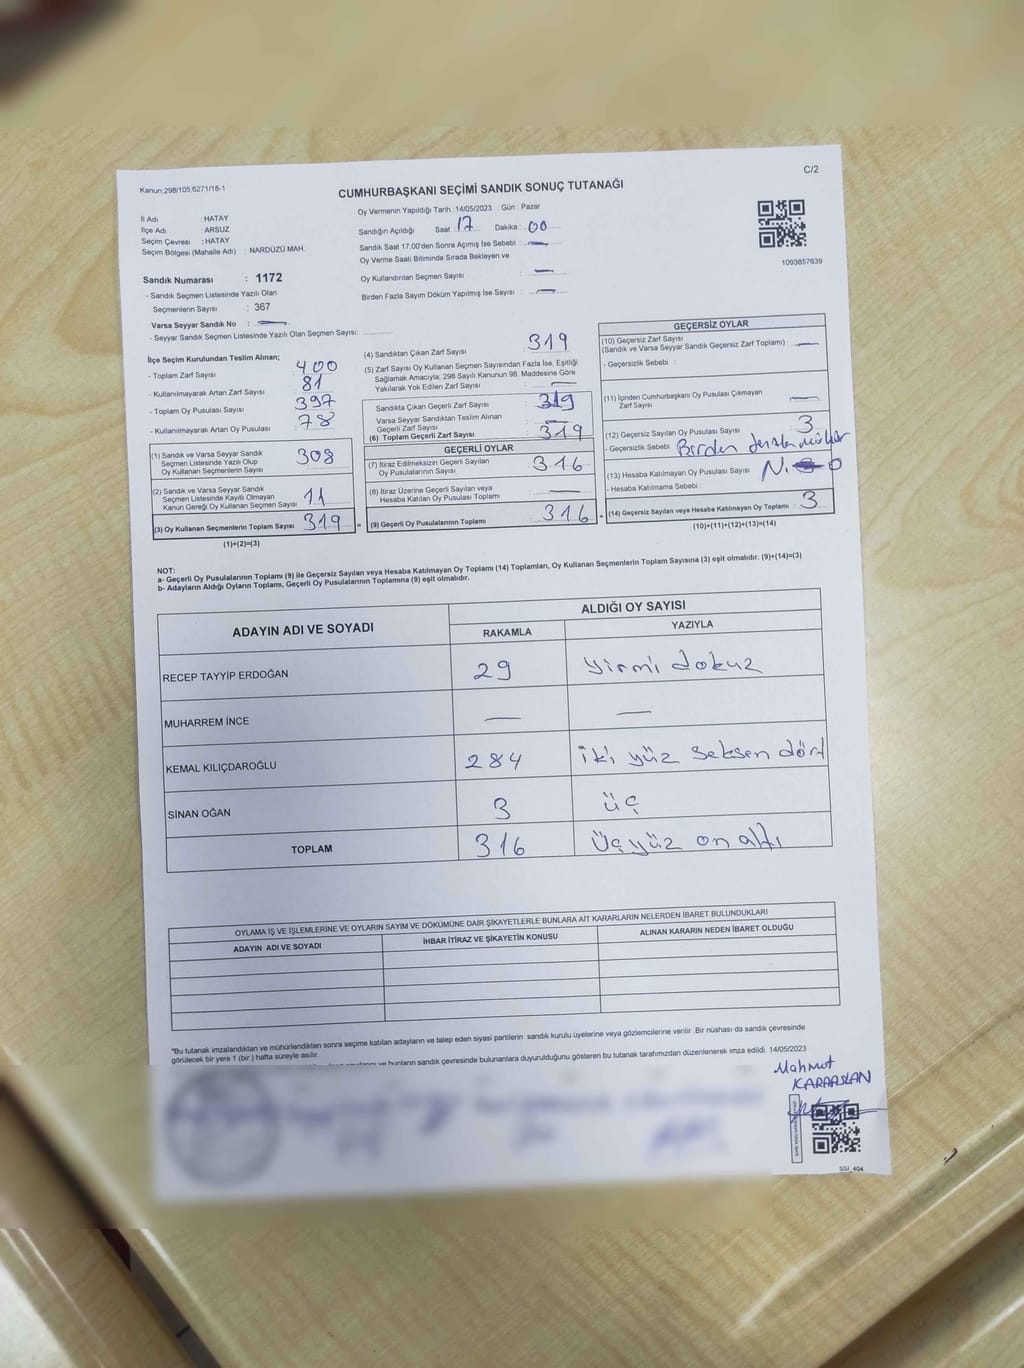 Kanun:298/105,6271/18-1
C/2
CUMHURBAŞKANI SEÇİMİ SANDIK SONUÇ TUTANAĞI
İl Adı : HATAY
İlçe Adı : ARSUZ
Seçim Çevresi : HATAY
Seçim Bölgesi (Mahalle Adı) : NARDÜZÜ MAH.
Sandık Numarası : 1172
- Sandık Seçmen Listesinde Yazılı Olan
Seçmenlerin Sayısı : 367
Varsa Seyyar Sandık No :
- Seyyar Sandık Seçmen Listesinde Yazılı Olan Seçmen Sayısı:
Oy Vermenin Yapıldığı Tarih :14/05/2023 Gün : Pazar
Sandığın Açıldığı Saat 17 Dakika : 00
Sandık Saat 17:00'den Sonra Açımış İse Sebebi : —
Oy Verme Saati Bitiminde Sırada Bekleyen ve
Oy Kullandırılan Seçmen Sayısı : —
Birden Fazla Sayım Döküm Yapılmış İse Sayısı : —
1093857639
İlçe Seçim Kurulundan Teslim Alınan;
- Toplam Zarf Sayısı : 400
- Kullanılmayarak Artan Zarf Sayısı : 81
- Toplam Oy Pusulası Sayısı : 397
- Kullanılmayarak Artan Oy Pusulası : 78
(1) Sandık ve Varsa Seyyar Sandık
Seçmen Listesinde Yazılı Olup
Oy Kullanan Seçmenlerin Sayısı 308
(2) Sandık ve Varsa Seyyar Sandık
Seçmen Listesinde Kayıtlı Olmayan
Kanun Gereği Oy Kullanan Seçmen Sayısı 11
(3) Oy Kullanan Seçmenlerin Toplam Sayısı 319 =
(1)+(2)=(3)
(4) Sandıktan Çıkan Zarf Sayısı : 319
(5) Zarf Sayısı Oy Kullanan Seçmen Sayısından Fazla İse, Eşitliği
Sağlamak Amacıyla, 298 Sayılı Kanunun 98. Maddesine Göre
Yakılarak Yok Edilen Zarf Sayısı : —
Sandıkta Çıkan Geçerli Zarf Sayısı : 319
Varsa Seyyar Sandıktan Teslim Alınan
Geçerli Zarf Sayısı : —
(6) Toplam Geçerli Zarf Sayısı : 319
GEÇERLİ OYLAR
(7) İtiraz Edilmeksizin Geçerli Sayılan
Oy Pusulasının Sayısı : 316
(8) İtiraz Üzerine Geçerli Sayılan veya
Hesaba Katılan Oy Pusulası Toplamı : —
(9) Geçerli Oy Pusulalarının Toplamı : 316 +
GEÇERSİZ OYLAR
(10) Geçersiz Zarf Sayısı
(Sandık ve Varsa Seyyar Sandık Geçersiz Zarf Toplamı) : —
- Geçersizlik Sebebi :
(11) İçinden Cumhurbaşkanı Oy Pusulası Çıkmayan
Zarf Sayısı : —
(12) Geçersiz Sayılan Oy Pusulası Sayısı : 3
- Geçersizlik Sebebi : Birden
(13) Hesaba Katılmayan Oy Pusulası Sayısı
- Hesaba Katılmama Sebebi :
(14) Geçersiz Sayılan veya Hesaba Katılmayan Oy Toplamı : 3
(10)+(11)+(12)+(13)=(14)
NOT:
a- Geçerli Oy Pusulalarının Toplamı (9) ile Geçersiz Sayılan veya Hesaba Katılmayan Oy Toplamı (14) Toplamları, Oy Kullanan Seçmenlerin Toplam Sayısına (3) eşit olmalıdır. (9)+(14)=(3)
b- Adayların Aldığı Oyların Toplamı, Geçerli Oy Pusulalarının Toplamına (9) eşit olmalıdır.
ADAYIN ADI VE SOYADI
ALDIĞI OY SAYISI
RAKAMLA YAZIYLA
RECEP TAYYİP ERDOĞAN 29 yirmi dokuz
MUHARREM İNCE — —
KEMAL KILIÇDAROĞLU 284 iki yüz seksen dört
SİNAN OĞAN 3 üç
TOPLAM 316 Üçyüz on altı
OYLAMA İŞ VE İŞLEMLERİNE VE OYLARIN SAYIM VE DÖKÜMÜNE DAİR ŞİKAYETLERLE BUNLARA AİT KARARLARIN NELERDEN İBARET BULUNDUKLARI
ADAYIN ADI VE SOYADI İHBAR İTİRAZ VE ŞİKAYETİN KONUSU ALINAN KARARIN NEDEN İBARET OLDUĞU
"Bu tutanak imzalandıktan ve mühürlendikten sonra seçime katılan adayların ve talep eden siyasi partilerin sandık kurulu üyelerine veya gözlemcilerine verilir .Bir nüshası da sandık çevresinde
görülecek bir yere 1 (bir ) hafta süreyle asılır.
ve bunların sandık çevresinde bulunanlara duyurulduğunu gösteren bu tutanak tarafımızdan düzenlenerek imza edildi. 14/05/2023
Mahmut
KARAASLAN
SSİ_404